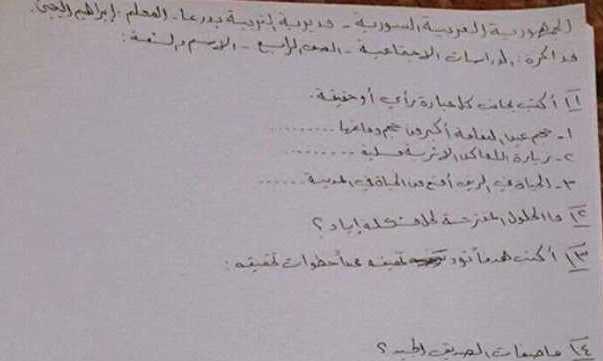 الجمهورية العربية السورية - مديرية التربية بدرعا - المعلم: إبراهيم
مذاكرة: الدراسات الاجتماعية - الصف الرابع - الاسم والشعبة:
١| أكتب بجانب كل عبارة رأي أو حقيقة.
١- حجم عين النعامة أكبر من حجم دماغها .........
٢- زيارة الأماكن الأثرية مسلية .........
٣- الحياة في الريف أمتع من الحياة في المدينة ......
٢| ما الحلول المقترحة لحل مشكلة إياد؟
٣| أكتب هدفاً تود تحقيقه محدداً خطوات تحقيقه:
٤| ما صفات الصديق الجيد؟